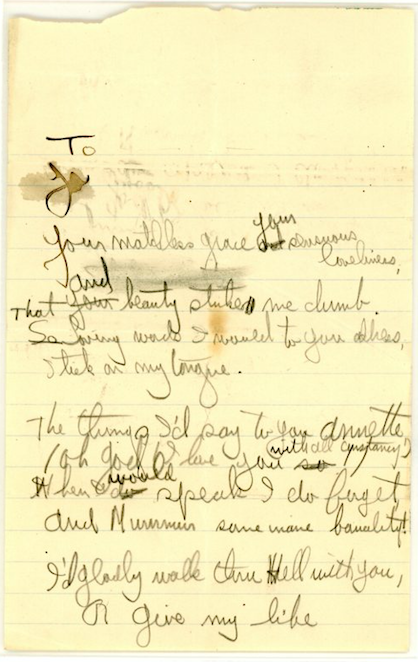 To
Your matchless grace your sensuous
loveliness,
and
That your beauty strikes me dumb.
So loving words I would to you address,
Stick on my tongue.
The things I'd say to you Annette
(oh God I love you so with all constancy)
When I do would speak I do forget
and Murmur some inane banality!
I'd gladly walk thru Hell with you,
Or give my life